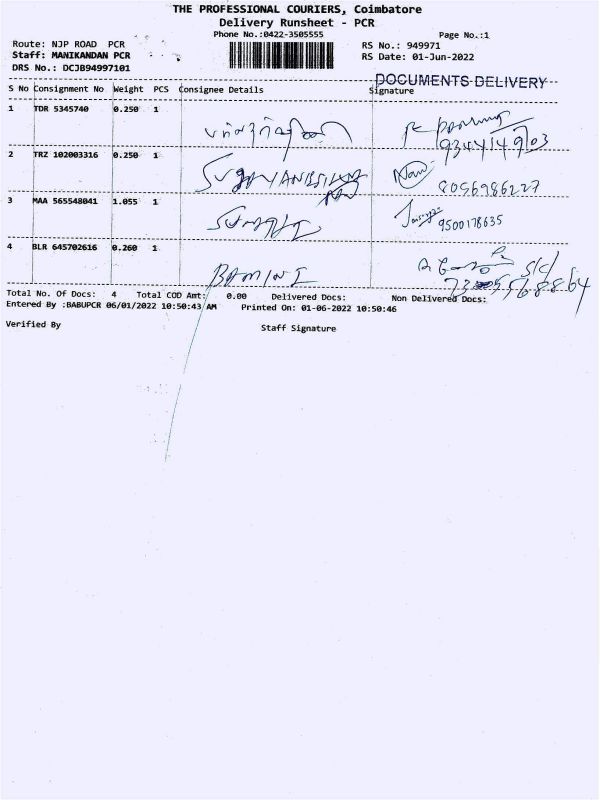 THE PROFESSIONAL COURIERS, Coimbatore
Delivery Runsheet - PCR
Phone No.:0422-3505555 Page No.:1
Route: NJP ROAD PCR RS No.: 949971
Staff: MANIKANDAN PCR RS Date: 01-Jun-2022
DRS No.: DCJB94997101
DOCUMENTS DELIVERY
S No Consignment No Weight PCS Consignee Details Signature
1 TDR 5345740 0.250 1
2 TRZ 102003316 0.250 1
8056986227
3 MAA 565548041 1.055 1
9500178635
4 BLR 645702616 0.260 1
BAMINI
Total No. Of Docs: 4 Total COD Amt: 0.00 Delivered Docs: Non Delivered Docs:
Entered By :BABUPCR 06/01/2022 10:50:43 AM Printed On: 01-06-2022 10:50:46
Verified By Staff Signature